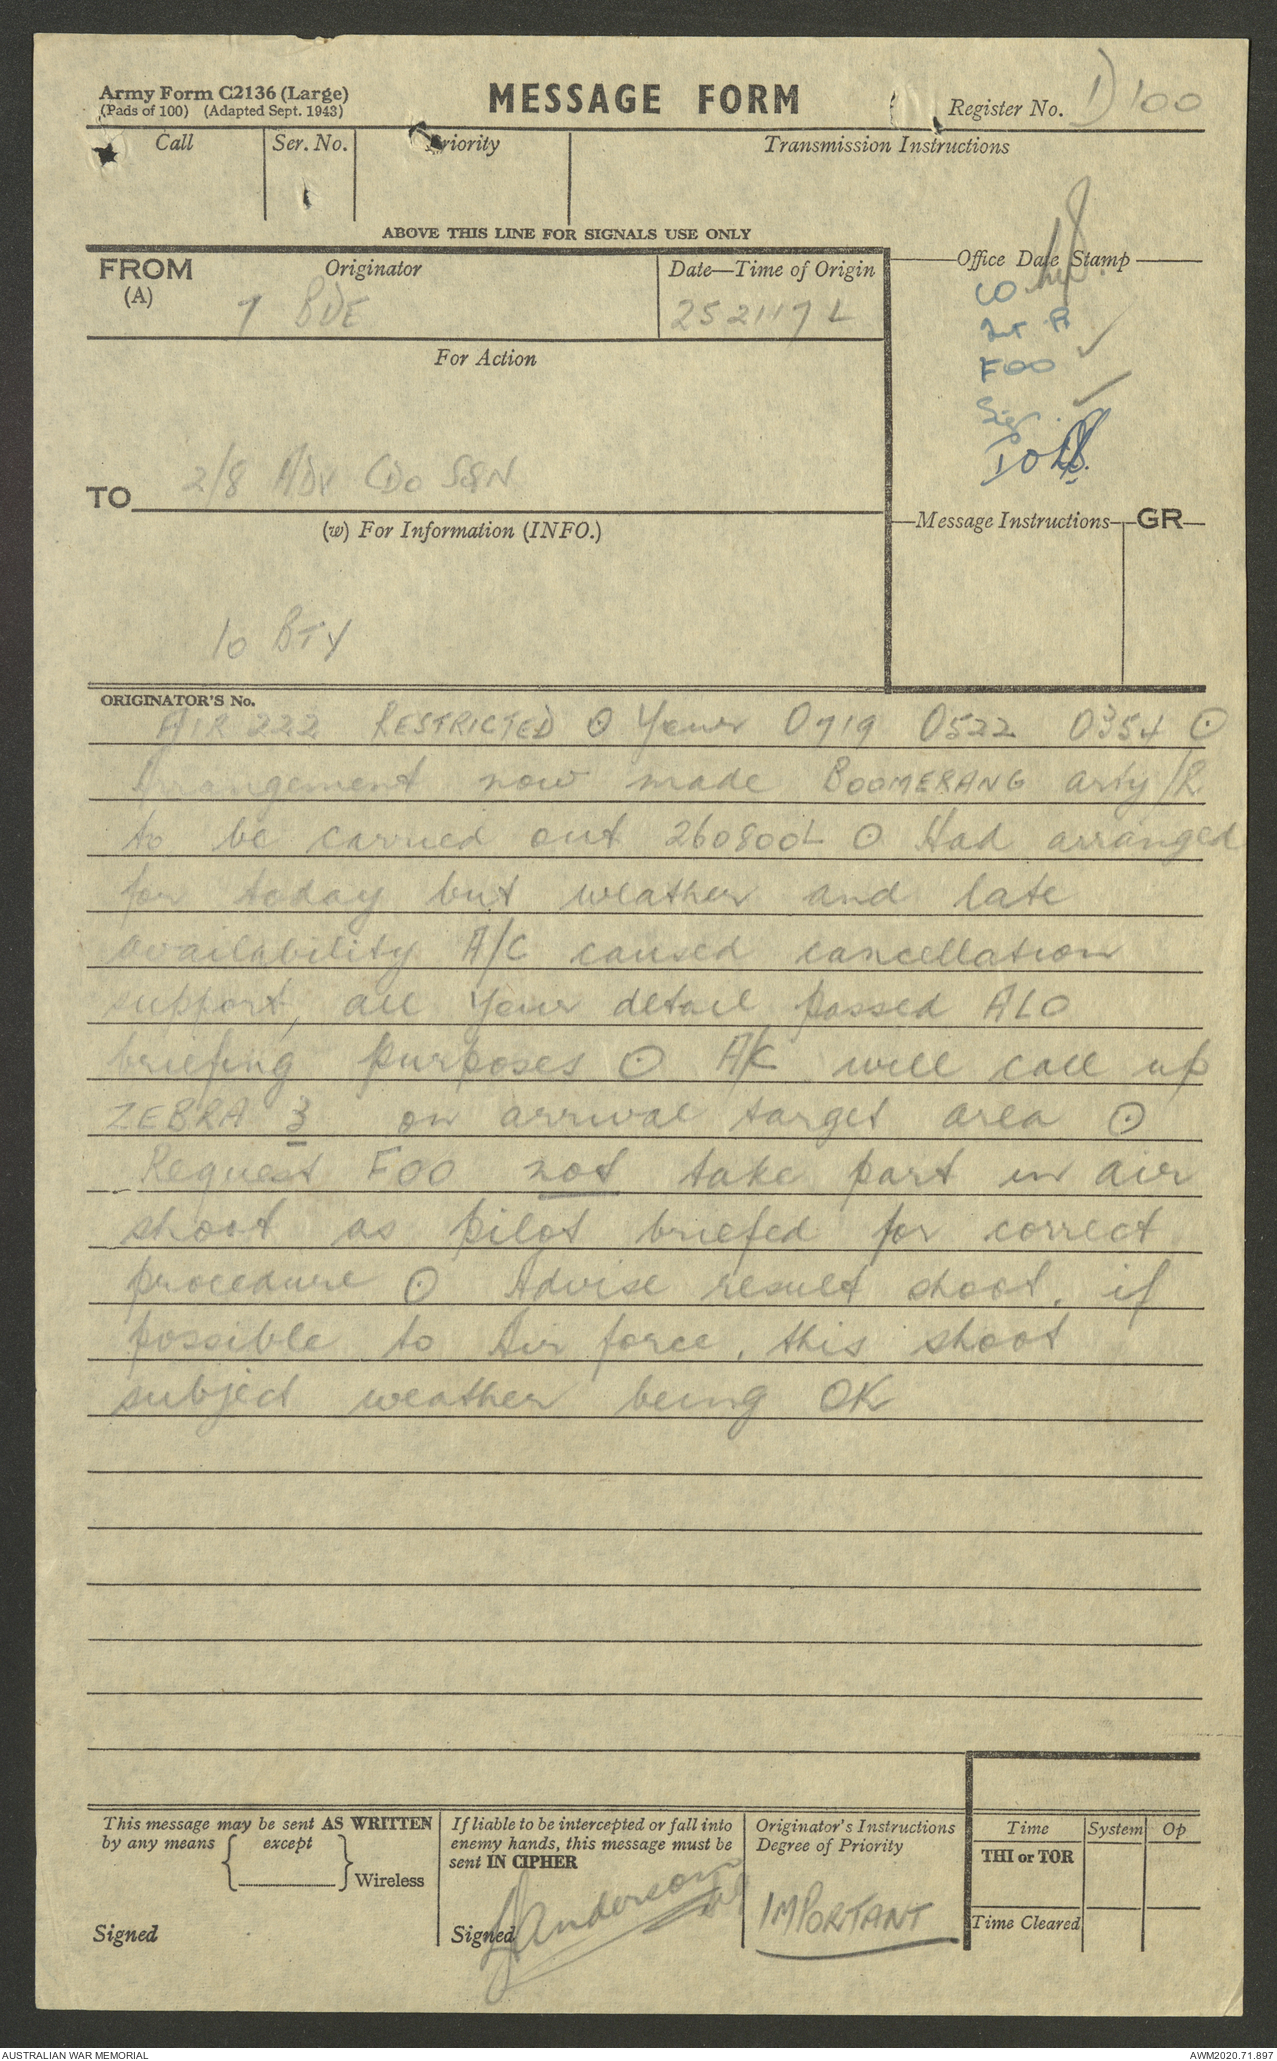 Army Form C2136 (Large)
(Pads of 100) (Adapted Sept. 1943)
MESSAGE FORM
Register No. 1) 100
Call
Ser. No.
Priority
Transmission Instructions
ABOVE THIS LINE FOR SIGNALS USE ONLY
FROM
(A)
Originator
7 BDE
Date—Time of Origin
252117 L
Office Date Stamp
CO
FOO ✓
Sig. ✓
IO
For Action
TO
2/8 Adv CDO SQN
(w) For Information (INFO.)
10 BTY
Message Instructions
GR
ORIGINATOR'S No.
AIR 222 RESTRICTED ⊙ Your 0719 0522 0354 ⊙
Arrangement now made BOOMERANG arty/R
to be carried out 260800L ⊙ Had arranged
for today but weather and late
availability A/C caused cancellation
support, all your detail passed ALO
briefing purposes ⊙ A/C will call up
ZEBRA 3 on arrival target area ⊙
Request FOO not take part in air
shoot as pilot briefed for correct
procedure ⊙ Advise result shoot, if
possible to Air force, this shoot
subject weather being OK
This message may be sent AS WRITTEN
by any means { except } Wireless
Signed
If liable to be intercepted or fall into
enemy hands, this message must be
sent IN CIPHER
Signed Anderson
Originator's Instructions
Degree of Priority
IMPORTANT
Time
System
Op
THI or TOR
Time Cleared
AUSTRALIAN WAR MEMORIAL
AWM2020.71.897